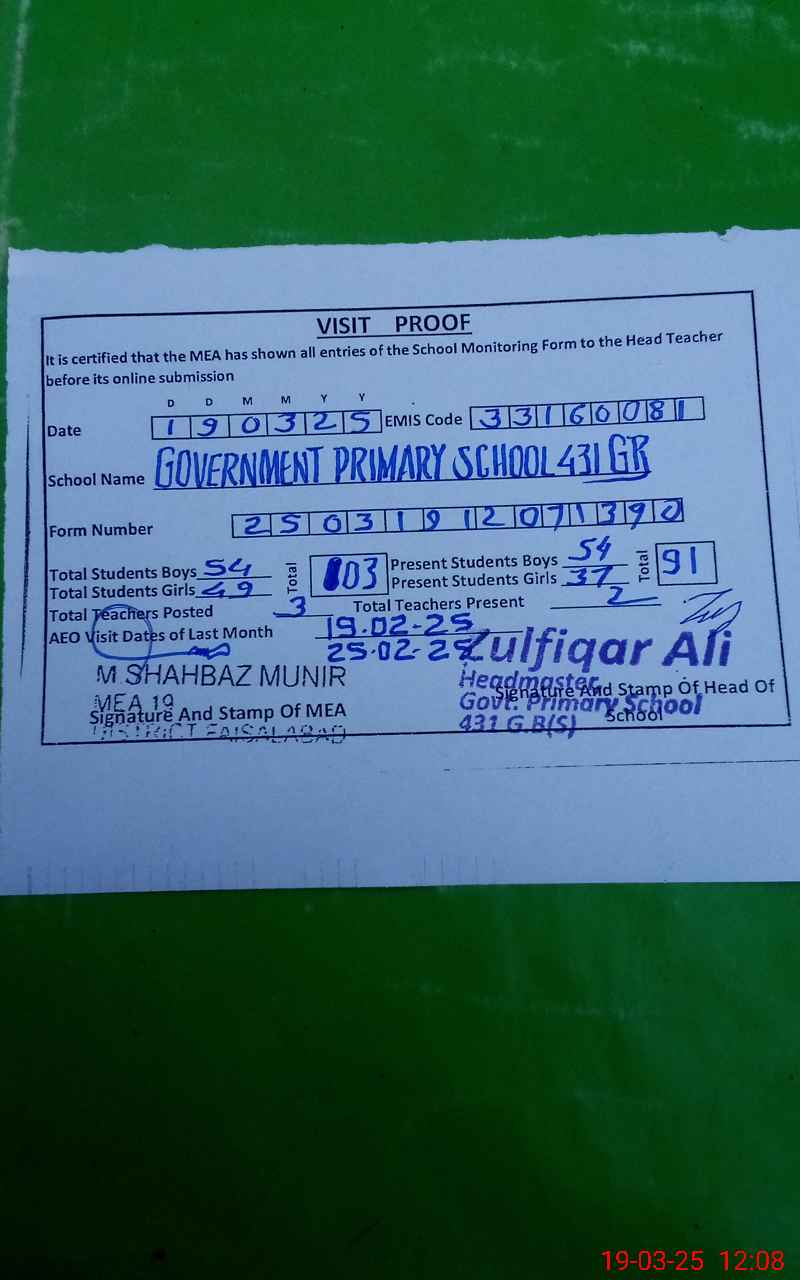 VISIT PROOF
It is certified that the MEA has shown all entries of the School Monitoring Form to the Head Teacher
before its online submission
D D M M Y Y
Date 1 9 0 3 2 5 EMIS Code 3 3 1 6 0 0 8 1
School Name GOVERNMENT PRIMARY SCHOOL 431 GB
Form Number 2 5 0 3 1 9 1 2 0 7 1 3 9 0
Total Students Boys 54 Total 103 Present Students Boys 54 Total 91
Total Students Girls 49 Present Students Girls 37
Total Teachers Posted 3 Total Teachers Present 2
AEO Visit Dates of Last Month 19.02-25
25.02-25
Zulfiqar Ali
M.SHAHBAZ MUNIR
Headmaster
MEA 19
Signature And Stamp Of Head Of
Govt. Primary School
Signature And Stamp Of MEA
School
431 G.B(S)
DISTRICT FAISALABAD
19-03-25 12:08